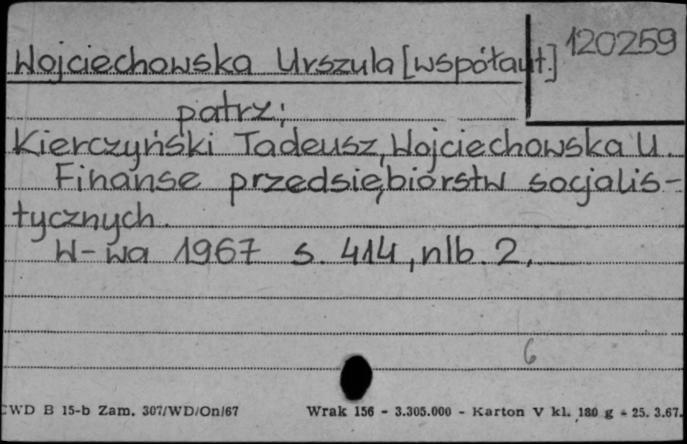 120259
Wojciechowska Urszula [współaut.]
patrz:
Kierczyński Tadeusz, Wojciechowska U.
Finanse przedsiębiorstw socjalis-
tycznych.
W-wa 1967 s. 414, nlb. 2,
6
CWD B 15-b Zam. 307/WD/On/67 Wrak 156 - 3.305.000 - Karton V kl. 180 g - 25. 3.67.